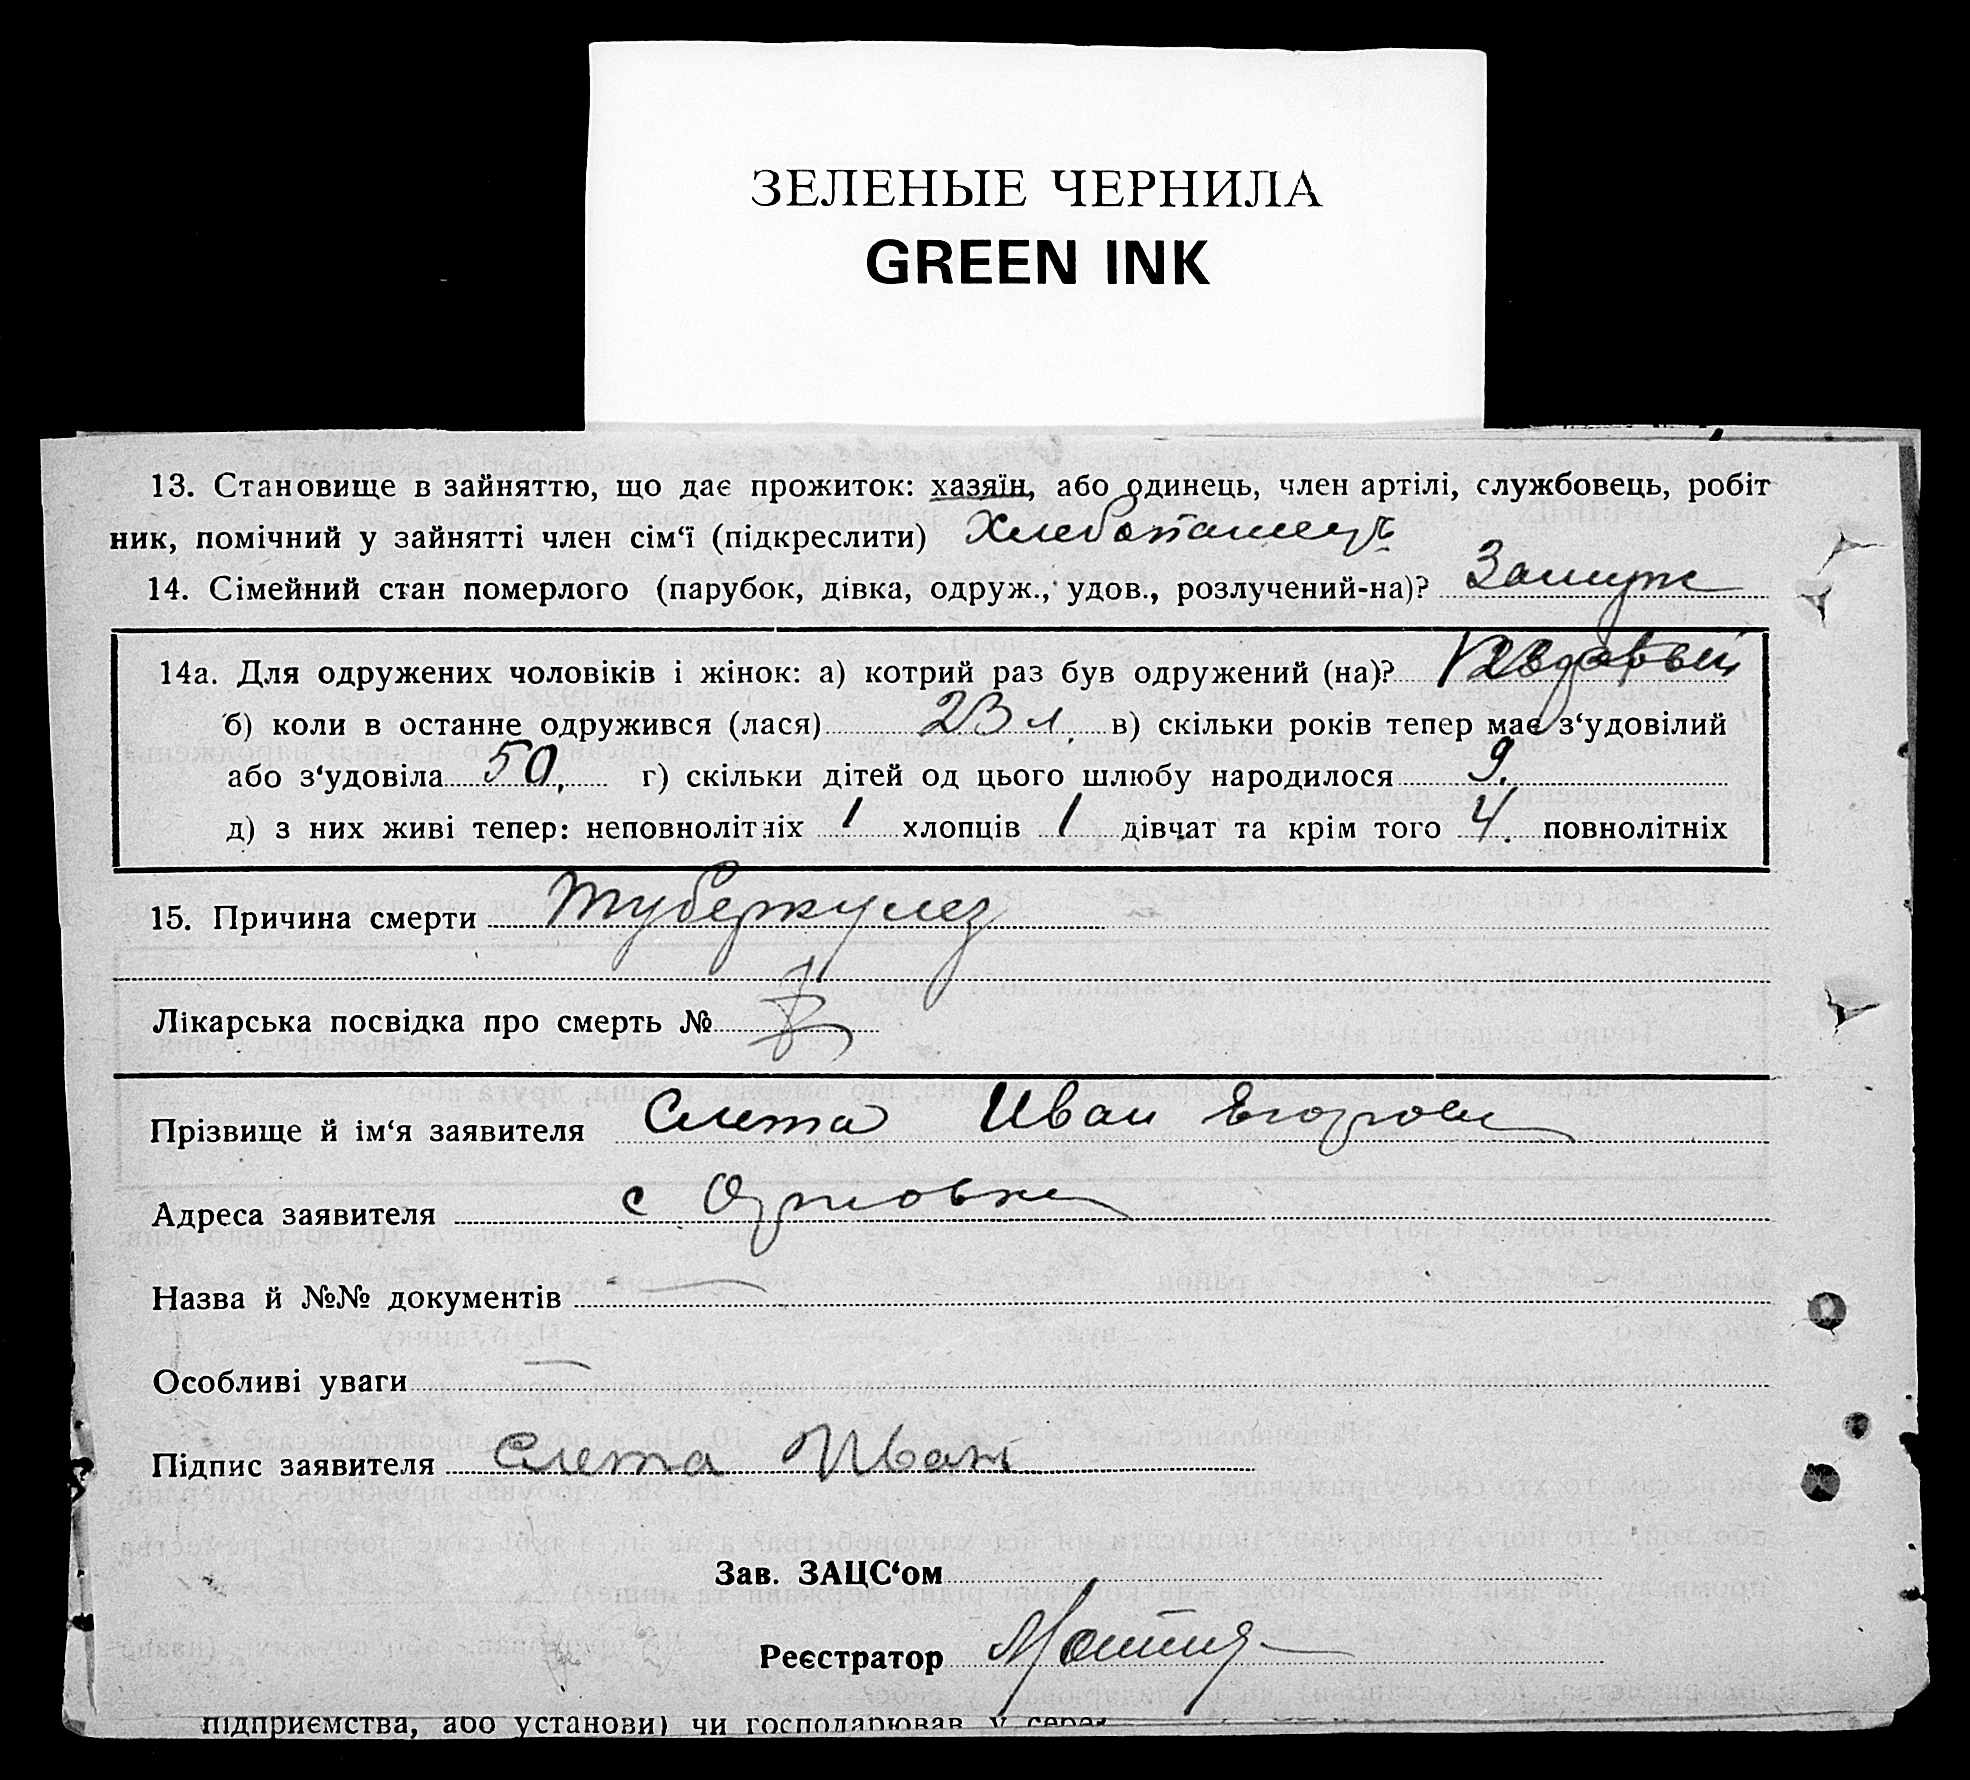 ЗЕЛЕНЫЕ ЧЕРНИЛА
GREEN INK
13. Становище в зайняттю, що дає прожиток: хазяїн, або одинець, член артілі, службовець, робіт
ник, помічний у зайнятті член сім‘ї (підкреслити) Хлебопашец
14. Сімейний стан померлого (парубок, дівка, одруж., удов., розлучений-на)? Замуж
14а. Для одружених чоловіків і жінок: а) котрий раз був одружений (на)?
б) коли в останнє одружився (лася) 23 л. в) скільки років тепер має з‘удовілий
або з‘удовіла 50, г) скільки дітей од цього шлюбу народилося 9.
д) з них живі тепер: неповнолітніх 1 хлопців 1 дівчат та крім того 4. повнолітніх
15. Причина смерти туберкулез
Лікарська посвідка про смерть №
Прізвище й ім‘я заявителя Слета Иван Егоров
Адреса заявителя с Орловка
Назва й №№ документів —
Особливі уваги —
Підпис заявителя Слета Иван
Зав. ЗАЦС‘ом
Реєстратор
підприємства, або установи) чи господарював у